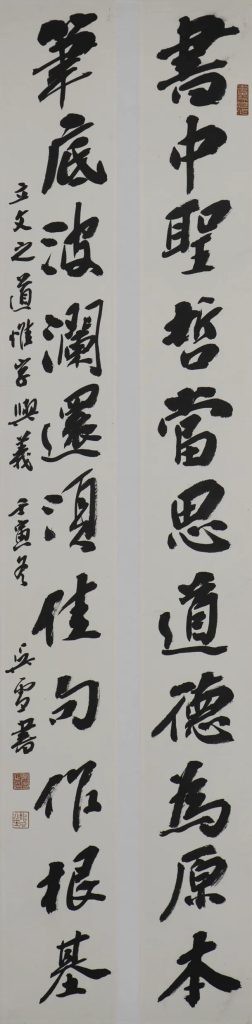 書中聖哲當思道德為原本
筆底波瀾還須佳句作根基
立文之道惟字與義 壬寅冬 吳雪書